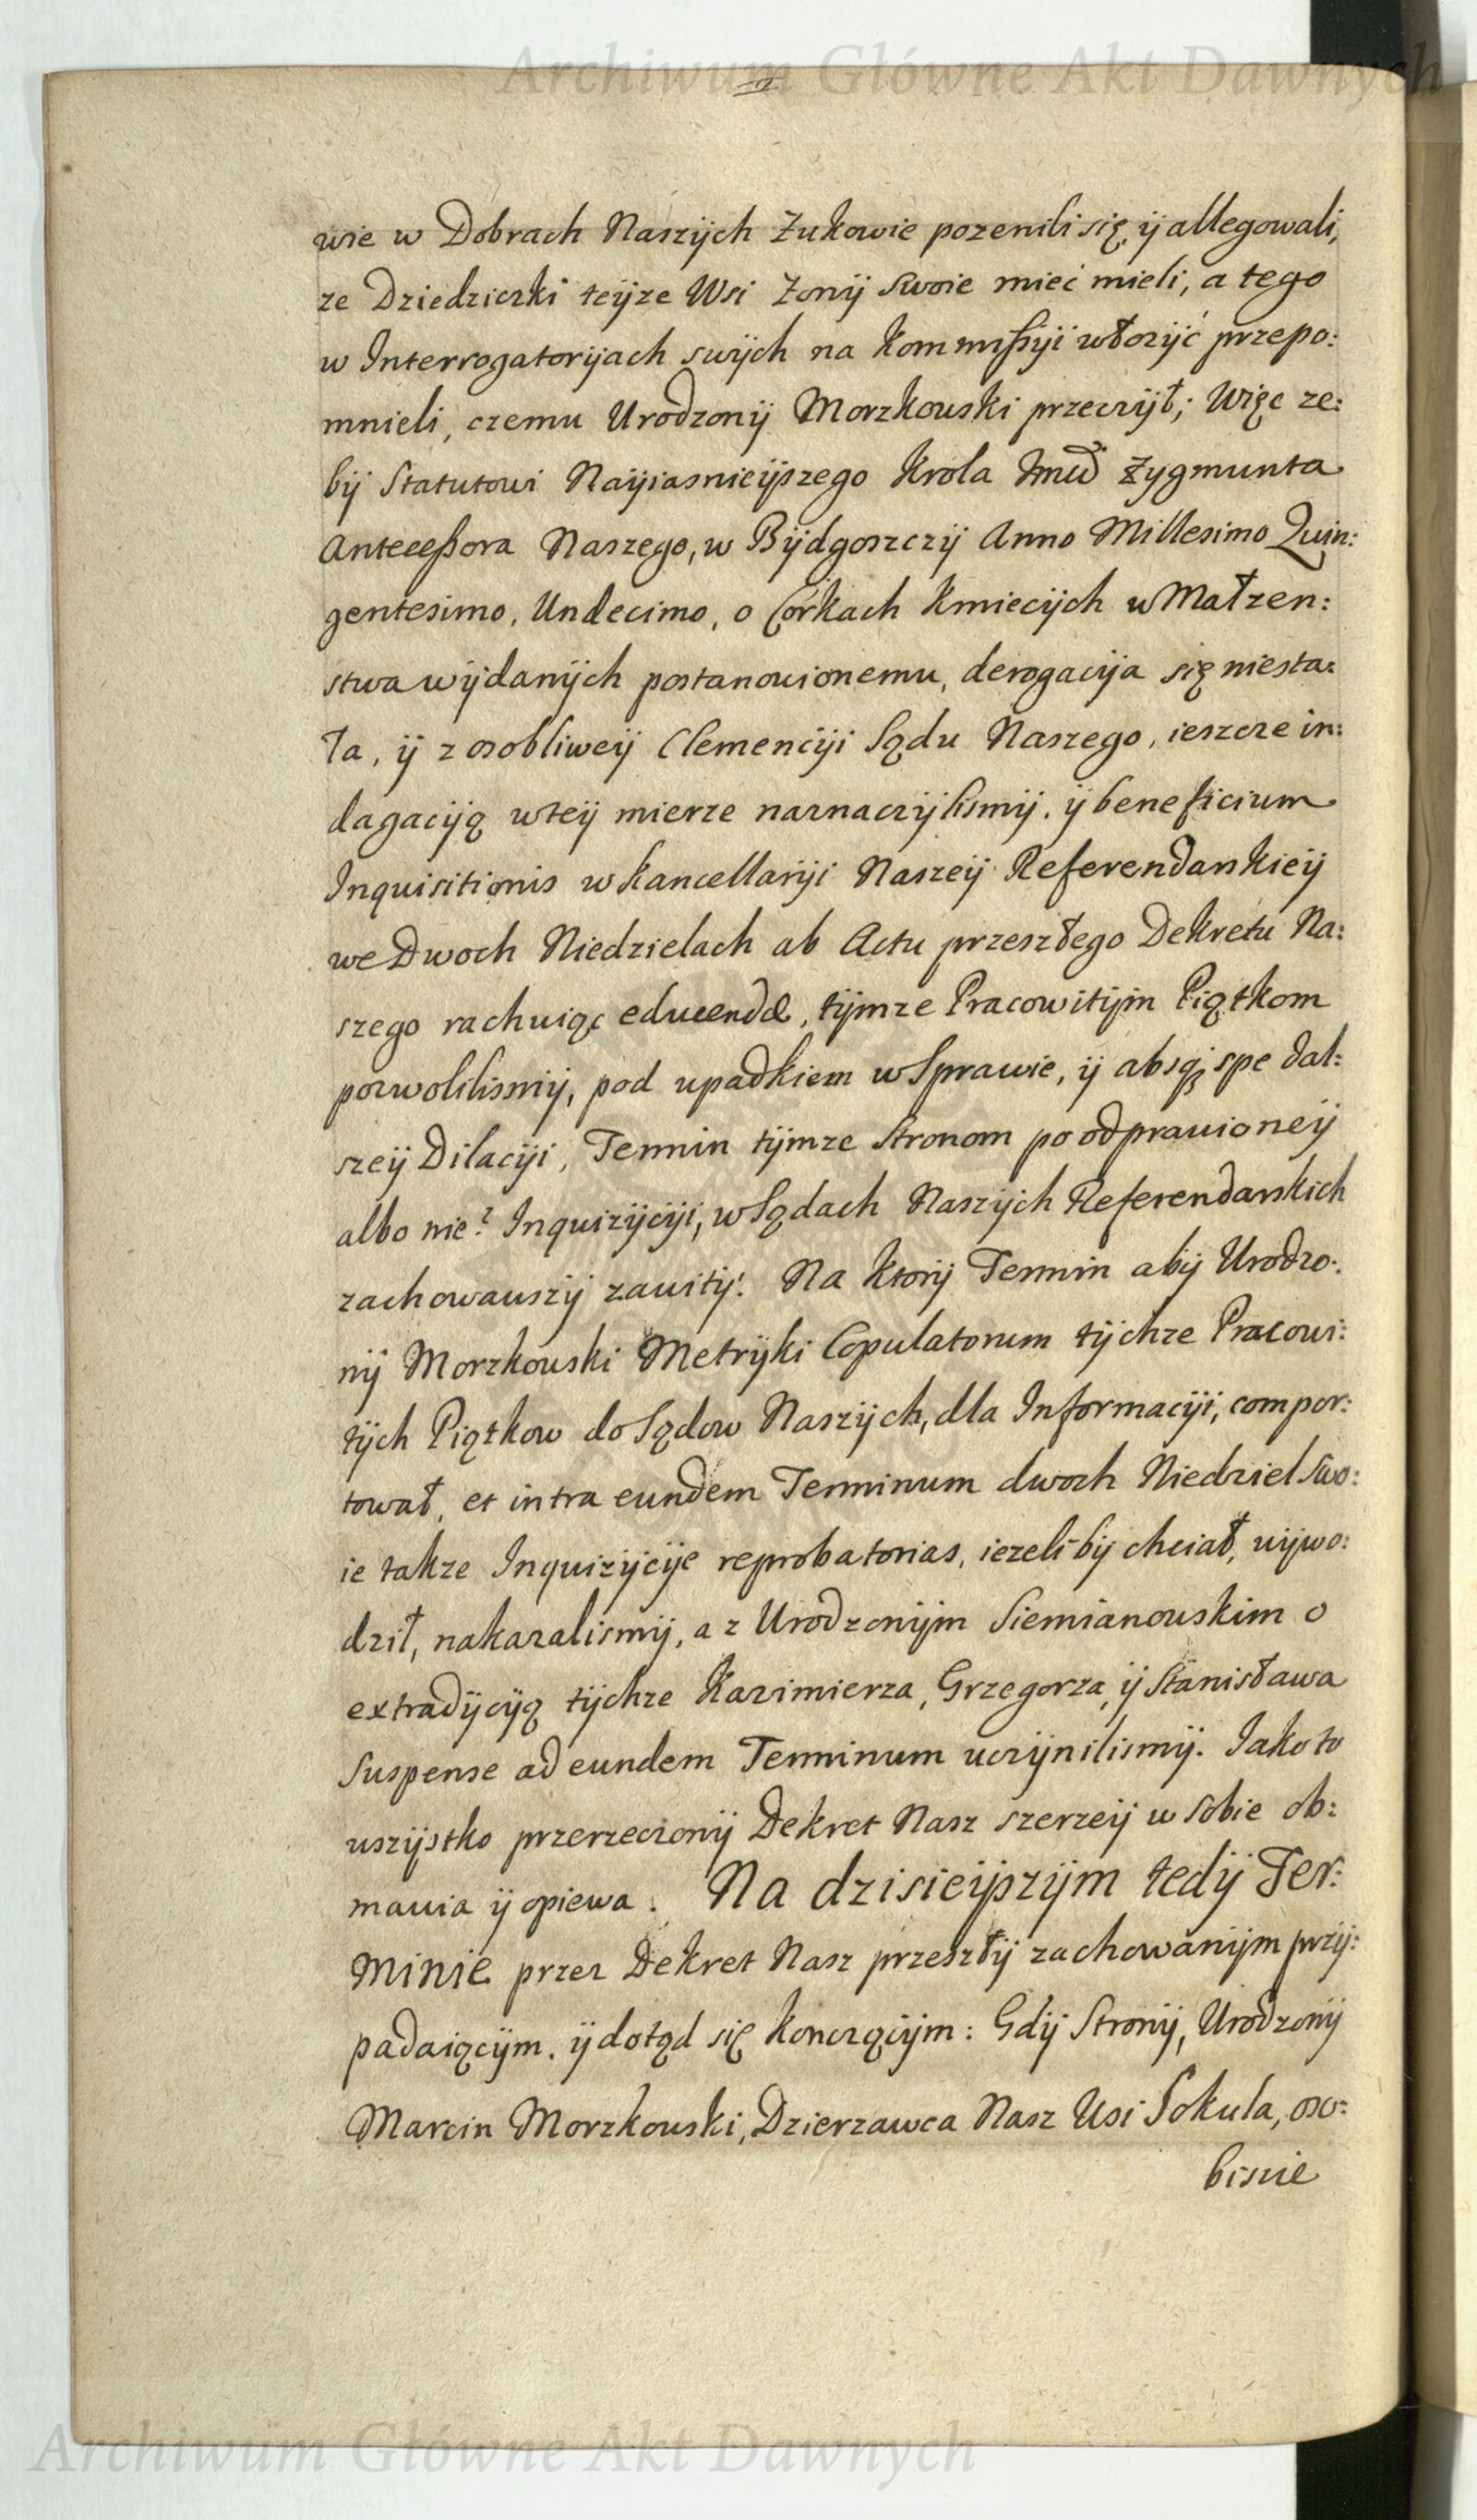 Archiwum Główne Akt Dawnych
wie w Dobrach Naszÿch Zukowie pozenili się, ÿ allegowali,
ze Dziedziczki teÿze Wsi Zonÿ Swoie mieć mieli, a tego
w Interrogatorÿach swÿch na Kommißÿi włozÿć przepo:
mnieli, czemu Urodzonÿ Morzkowski przeczÿł; Więc ze:
bÿ Statutowi Naÿiasnieÿszego Krola Jmći Zygmunta
Anteceßora Naszego, w Bÿdgoszczÿ Anno Millesimo Quin:
gentesimo, Undecimo, o Córkach Kmiecÿch w Małzen:
stwa wÿdanÿch postanowionemu, derogacÿa się niesta:
ła, ÿ z osobliweÿ Clemencÿi Sądu Naszego, ieszcze in:
dagacÿą wteÿ mierze naznaczÿlismÿ. ÿ beneficium
Inquisitionis w kancellarÿi Naszeÿ Referendarskieÿ
we Dwoch Niedzielach ab Actu przeszłego Dekretu Na:
szego rachuiąc educendæ, tÿmze Pracowitÿm Piątkom
pozwolilismÿ, pod upadkiem w Sprawie, ÿ absq; spe dal:
szeÿ Dilacÿi, Termin tÿmze Stronom po odprawioneÿ
albo nie? Inquizÿcÿi, w Sądach Naszÿch Referendarskich
zachowawszÿ zawitÿ: Na ktorÿ Termin abÿ Urodzo:
nÿ Morzkowski Metrÿki Copulatorum tÿchze Pracowi:
tÿch Piątkow do Sądow Naszÿch, dla Informacÿi, compor:
tował, et intra eundem Terminum dwoch Niedziel Swo:
ie takze Inquizÿcÿe reprobatorias, iezeli bÿ chciał, wÿwo:
dził, nakazalismÿ, a z Urodzonÿm Siemianowskim o
extradÿcÿą tÿchze Kazimierza, Grzegorza, ÿ Stanisława
Suspense ad eundem Terminum uczÿnilismÿ. Jako to
wszÿstko przerzeczonÿ Dekret Nasz szerzeÿ w Sobie ob:
mawia ÿ opiewa. Na dzisieÿszÿm tedÿ Ter:
minie przez Dekret Nasz przeszłÿ zachowanÿm przÿ:
padaiącÿm. ÿ dotąd się konczącÿm: Gdÿ Stronÿ, Urodzonÿ
Marcin Morzkowski, Dzierzawca Nasz Wsi Sokula, oso:
biscie
Archiwum Główne Akt Dawnych